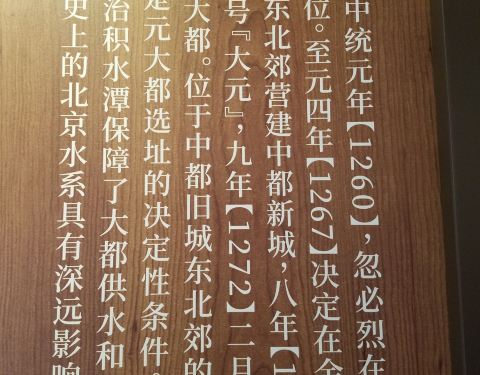 中统元年【1260】，忽必烈在
位。至元四年【1267】决定在金
东北郊营建中都新城，八年【1
号『大元』，九年【1272】二月
大都。位于中都旧城东北郊的
是元大都选址的决定性条件。
治积水潭保障了大都供水和
史上的北京水系具有深远影响